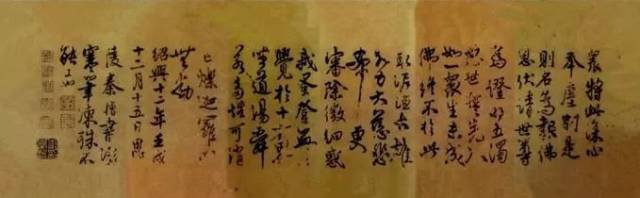 將此深心
奉塵刹是
則名為報佛
恩伏請世尊
為證明五濁
惡世誓先入
如一眾生未成
佛終不於此
取泥洹大雄
大力大慈悲
希更
審除微細惑
我早登無上
覺於十方界
坐道場舜
若多性可消
亡爍迦羅心
無動
紹興十二年壬戌
十二月十五日思
陵秦檜書
寒筆凍殊不
能工